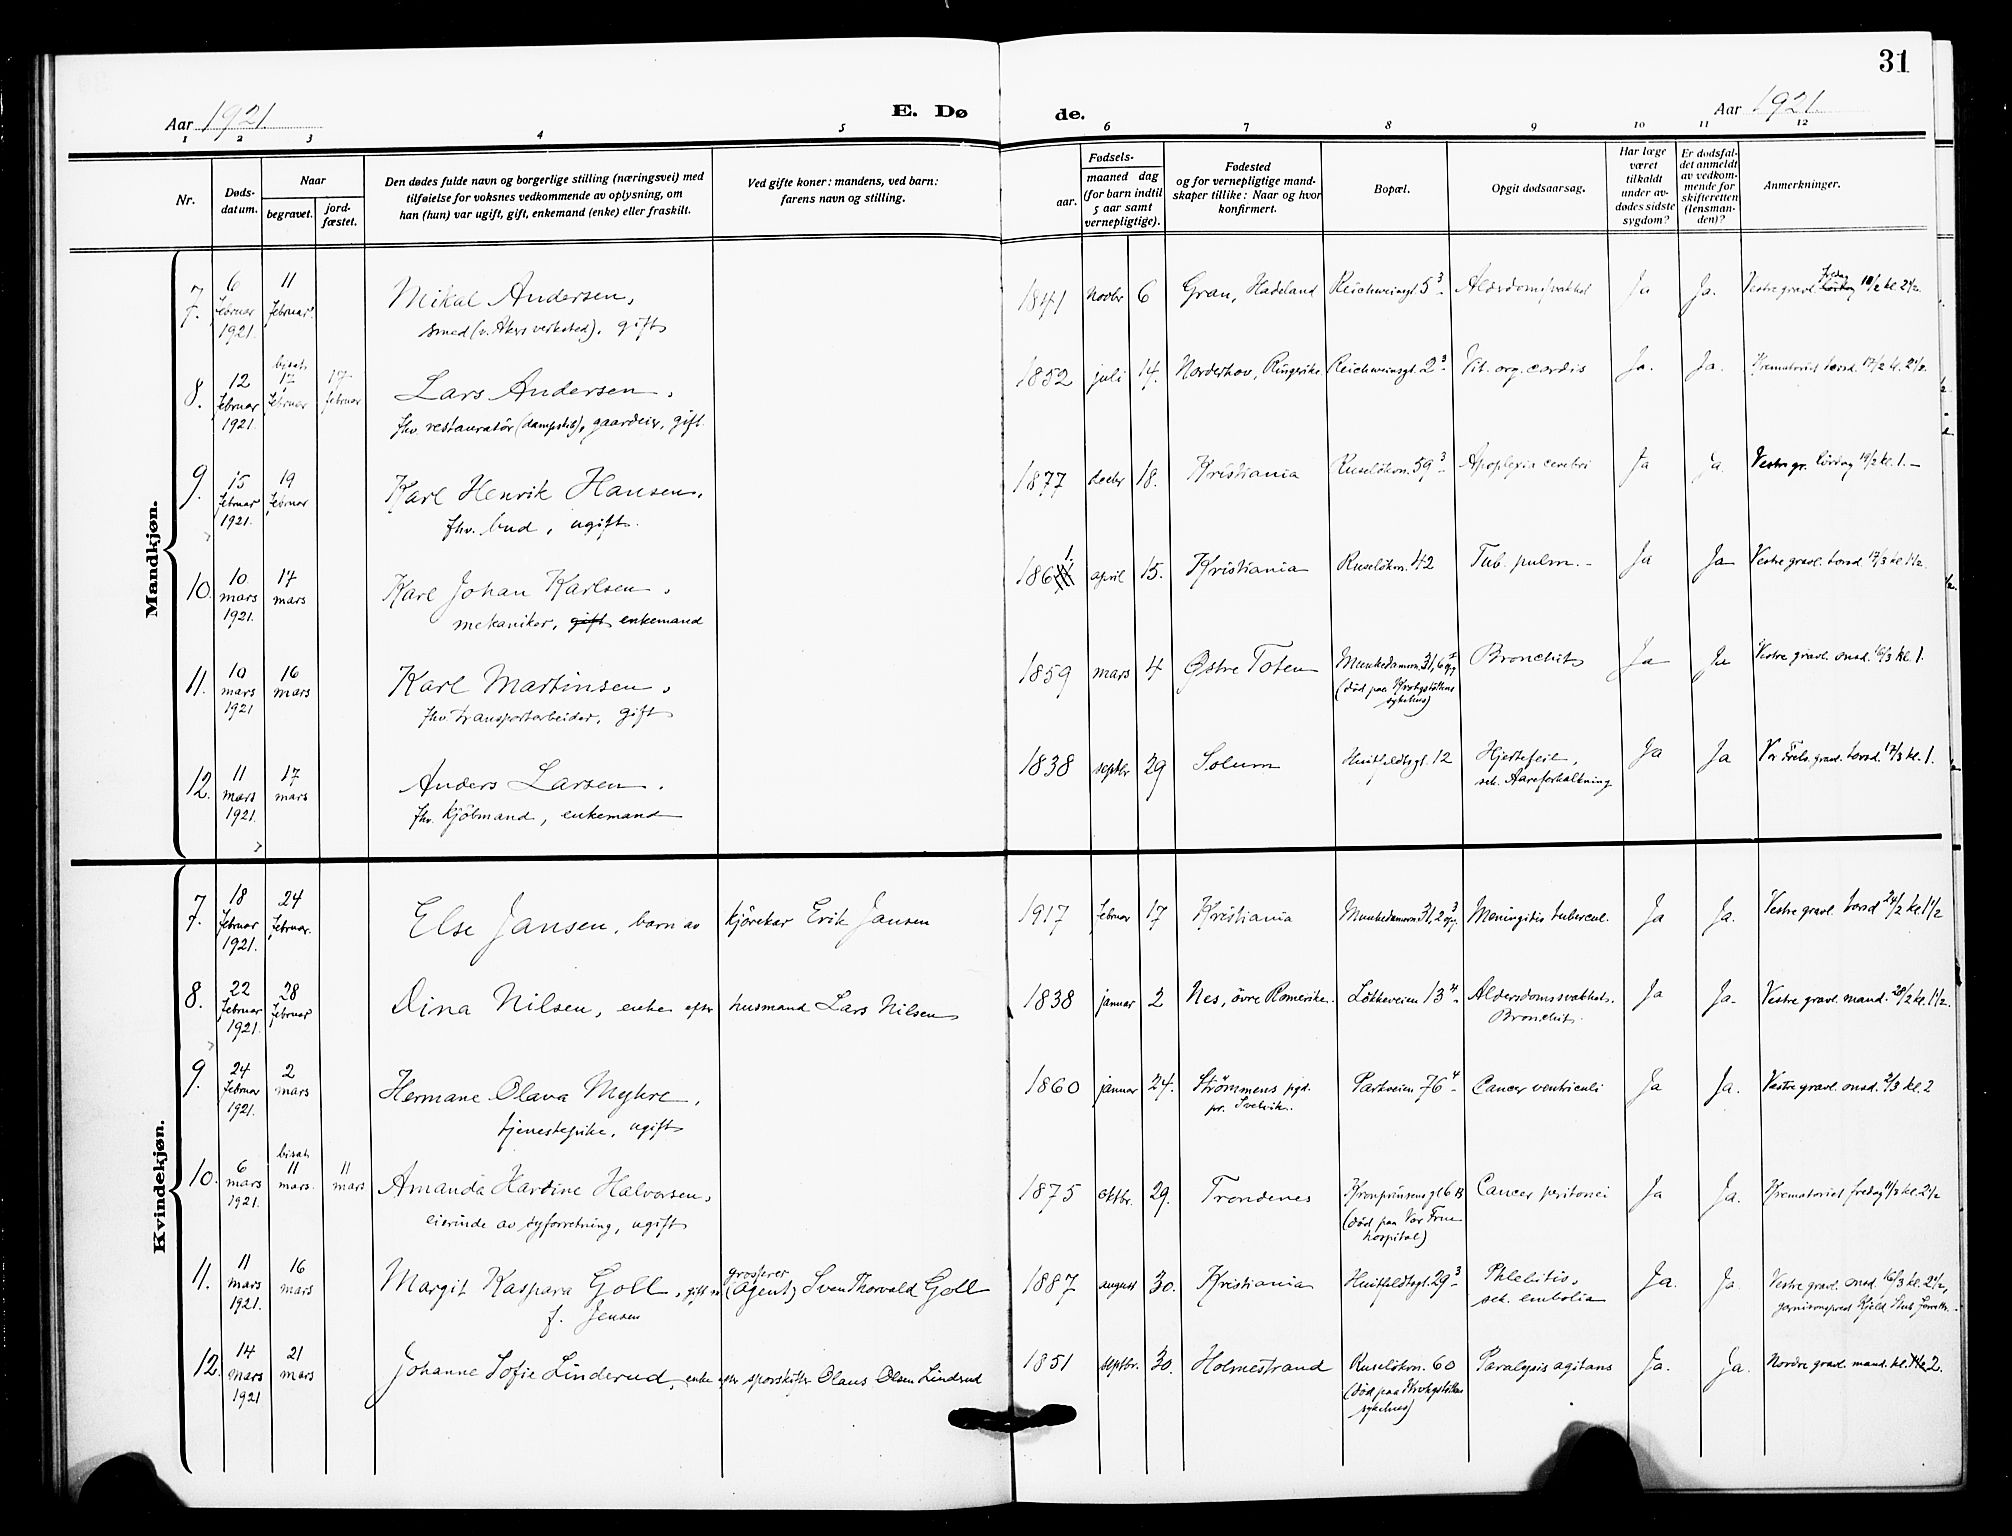 31
Aar 1921.
E. Dø
de.
Aar 1921.
1 2 3 4 5 6 7 8 9 10 11 12
Nr.
Døds-
datum.
Naar
begravet.
jord-
fæstet.
Den dødes fulde navn og borgerlige stilling (næringsvei) med
tilføielse for voksnes vedkommende av oplysning, om
han (hun) var ugift, gift, enkemand (enke) eller fraskilt.
Ved gifte koner: mandens, ved barn:
farens navn og stilling.
Fødsels-
aar.
maaned dag
(for barn indtil
5 aar samt
vernepligtige).
Fødested
og for vernepligtige mand-
skaper tillike: Naar og hvor
konfirmert.
Bopæl.
Opgit dødsaarsag.
Har læge
været
tilkaldt
under av-
dødes sidste
sygdom?
Er dødsfal-
det anmeldt
av vedkom-
mende for
skifteretten
(lensman-
den)?
Anmerkninger.
Mandkjøn.
7. 6 februar 1921. 11 februar.
Mikal Andersen,
smed (v. Akers verksted), gift
1841 novbr 6 Gran, Hadeland Reichweinsgt. 5³ Alderdomssvakhet Ja Ja. Vestre gravl. fredag 11/2 kl. 2½.
8. 12 februar 1921. bisat 17 februar 17 februar
Lars Andersen,
fhv. restauratør (dampskib), gaardeier, gift.
1852 juli 14. Norderhov, Ringerike. Reichweinsgt. 2³ Vit. org. cordis Ja. Ja. Krematoriet torsd. 17/2 kl. 2½.
9. 15 februar 1921. 19 februar
Karl Henrik Hansen,
fhv. bud, ugift.
1877 decbr 18. Kristiania Ruseløkvn. 59³ Apoplexia cerebri Ja Ja. Vestre gr. lørdag 19/2 kl. 1.–
10. 10 mars 1921. 17 mars
Karl Johan Karlsen,
mekaniker, gift enkemand
1861. april 15. Kristiania Ruseløkvn. 42 Tub. pulm. Ja Ja Vestre gravl. torsd. 17/3 kl. 1½.
11. 10 mars 1921 16 mars
Karl Martinsen,
fhv. transportarbeider, gift
1859 mars 4 Østre Toten Munkedamsvn. 31, 6 opg. Bronchit Ja Ja Vestre gravl. onsd. 16/3 kl. 1.
(død paa Krohgstøttens
sykehus)
12. 11 mars 1921. 17 mars
Anders Larsen.
fhv. kjøbmand, enkemand
1838 septbr 29 Solum Huitfeldtsgt. 12 Hjertefeil, Ja Ja Vor Frels. gravl. torsd. 17/3 kl. 1.
seh. Aareforkalkning
Kvindekjøn.
7. 18 februar 1921. 24 februar.
Else Jansen, barn av kjørekar Erik Jansen
1917 februar 17 Kristiania Munkedamsvn. 31, 2 opg. Meningitis tubercul. Ja Ja. Vestre gravl. torsd. 24/2 kl. 1½
8. 22 februar 1921. 28 februar
Dina Nilsen, enke efter husmand Lars Nilsen
1838 januar 2 Nes, øvre Romerike. Løkkeveien 13⁴ Aldersdomssvakhet. Ja Ja. Vestre gravl. mand. 28/2 kl. 1½.
Bronchit.
9. 24 februar 1921. 2 mars
Hermane Olava Myhre,
tjenestepike, ugift
1860 januar 24. Strømmens pgd. Parkveien 76⁴ Cancer ventriculi Ja Ja. Vestre gravl. onsd. 2/3 kl. 2
pr. Svelvik.
10. 6 mars 1921. bisat 11 mars. 11 mars
Amanda Hardine Halvorsen,
eierinde av syforretning, ugift
1875 oktbr. 29. Trondenes Kronprinsensgt. 6 B Cancer peritonei Ja Ja. Krematoriet fredag 11/3 kl. 2½
(død paa Vor Frue
hospital)
11. 11 mars 1921. 16 mars
Margit Kaspara Goll, gift m grosserer (Agent) Sven Thorvald Goll
f. Jensen
1887 august 30. Kristiania Huitfeldtsgt. 29³ Phlebitis, Ja. Ja Vestre gravl. onsd. 16/3 kl. 2½,
seh. embolia garnisonsprest Kjeld Stub forrettr.
12. 14 mars 1921 21 mars
Johanne Sofie Linderud, enke efter sporskifter Olaus Olsen Linderud
1851 septbr. 30. Holmestrand Ruseløkvn. 60 Paralysis agitans Ja. Ja. Nordre gravl. mand. kl. 2.
(død paa Krohgstøttens
sykehus)